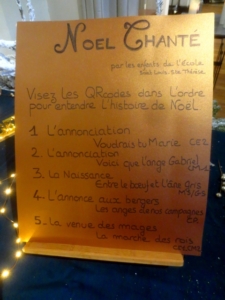 NOEL CHANTÉ
par les enfants de l'École
Visez les QRcodes dans l'ordre
pour entendre l'histoire de Noël.
1. L'annonciation
Voudrais tu Marie CE2
2. L'annonciation
Voici que l'ange Gabriel
3. La Naissance
Entre le boeuf et l'âne Gris
MS/GS
4. L'annonce aux bergers
Les anges dans nos campagnes
CP
5. La venue des mages
La marche des rois